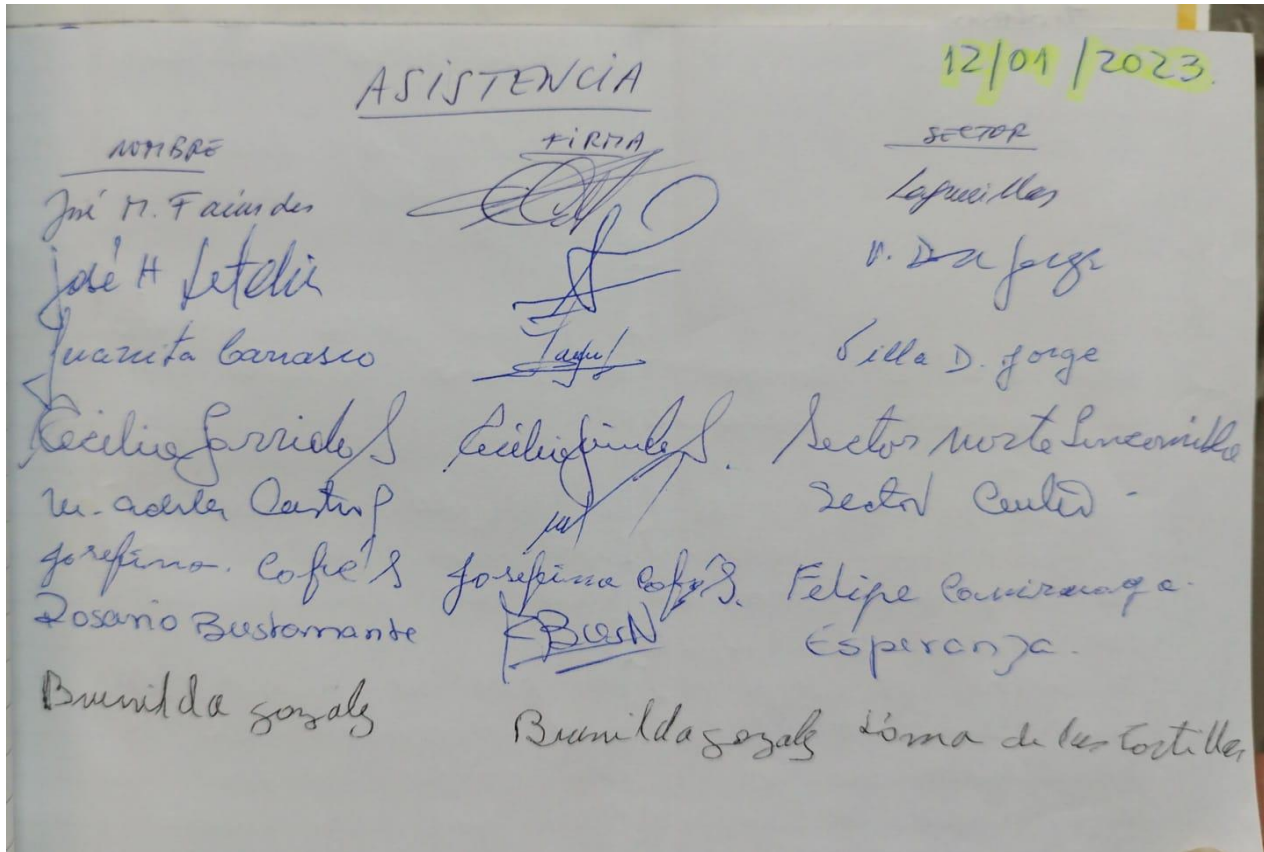 ASISTENCIA 12/01/2023.
NOMBRE FIRMA SECTOR
José M. Faúndes Lagunillas
José H Letelier V. Don Jorge
Juanita Carrasco Villa D. Jorge
Cecilia Garrido S Cecilia Garrido S. Sector Norte Loncomilla
M. Adela Castro Sector Centro -
Josefina. Cofré S Josefina Cofré S. Felipe Camiroaga.
Rosario Bustamante BustN Esperanza.
Brunilda gonzalz Brunilda gonzalz Loma de las Tortillas